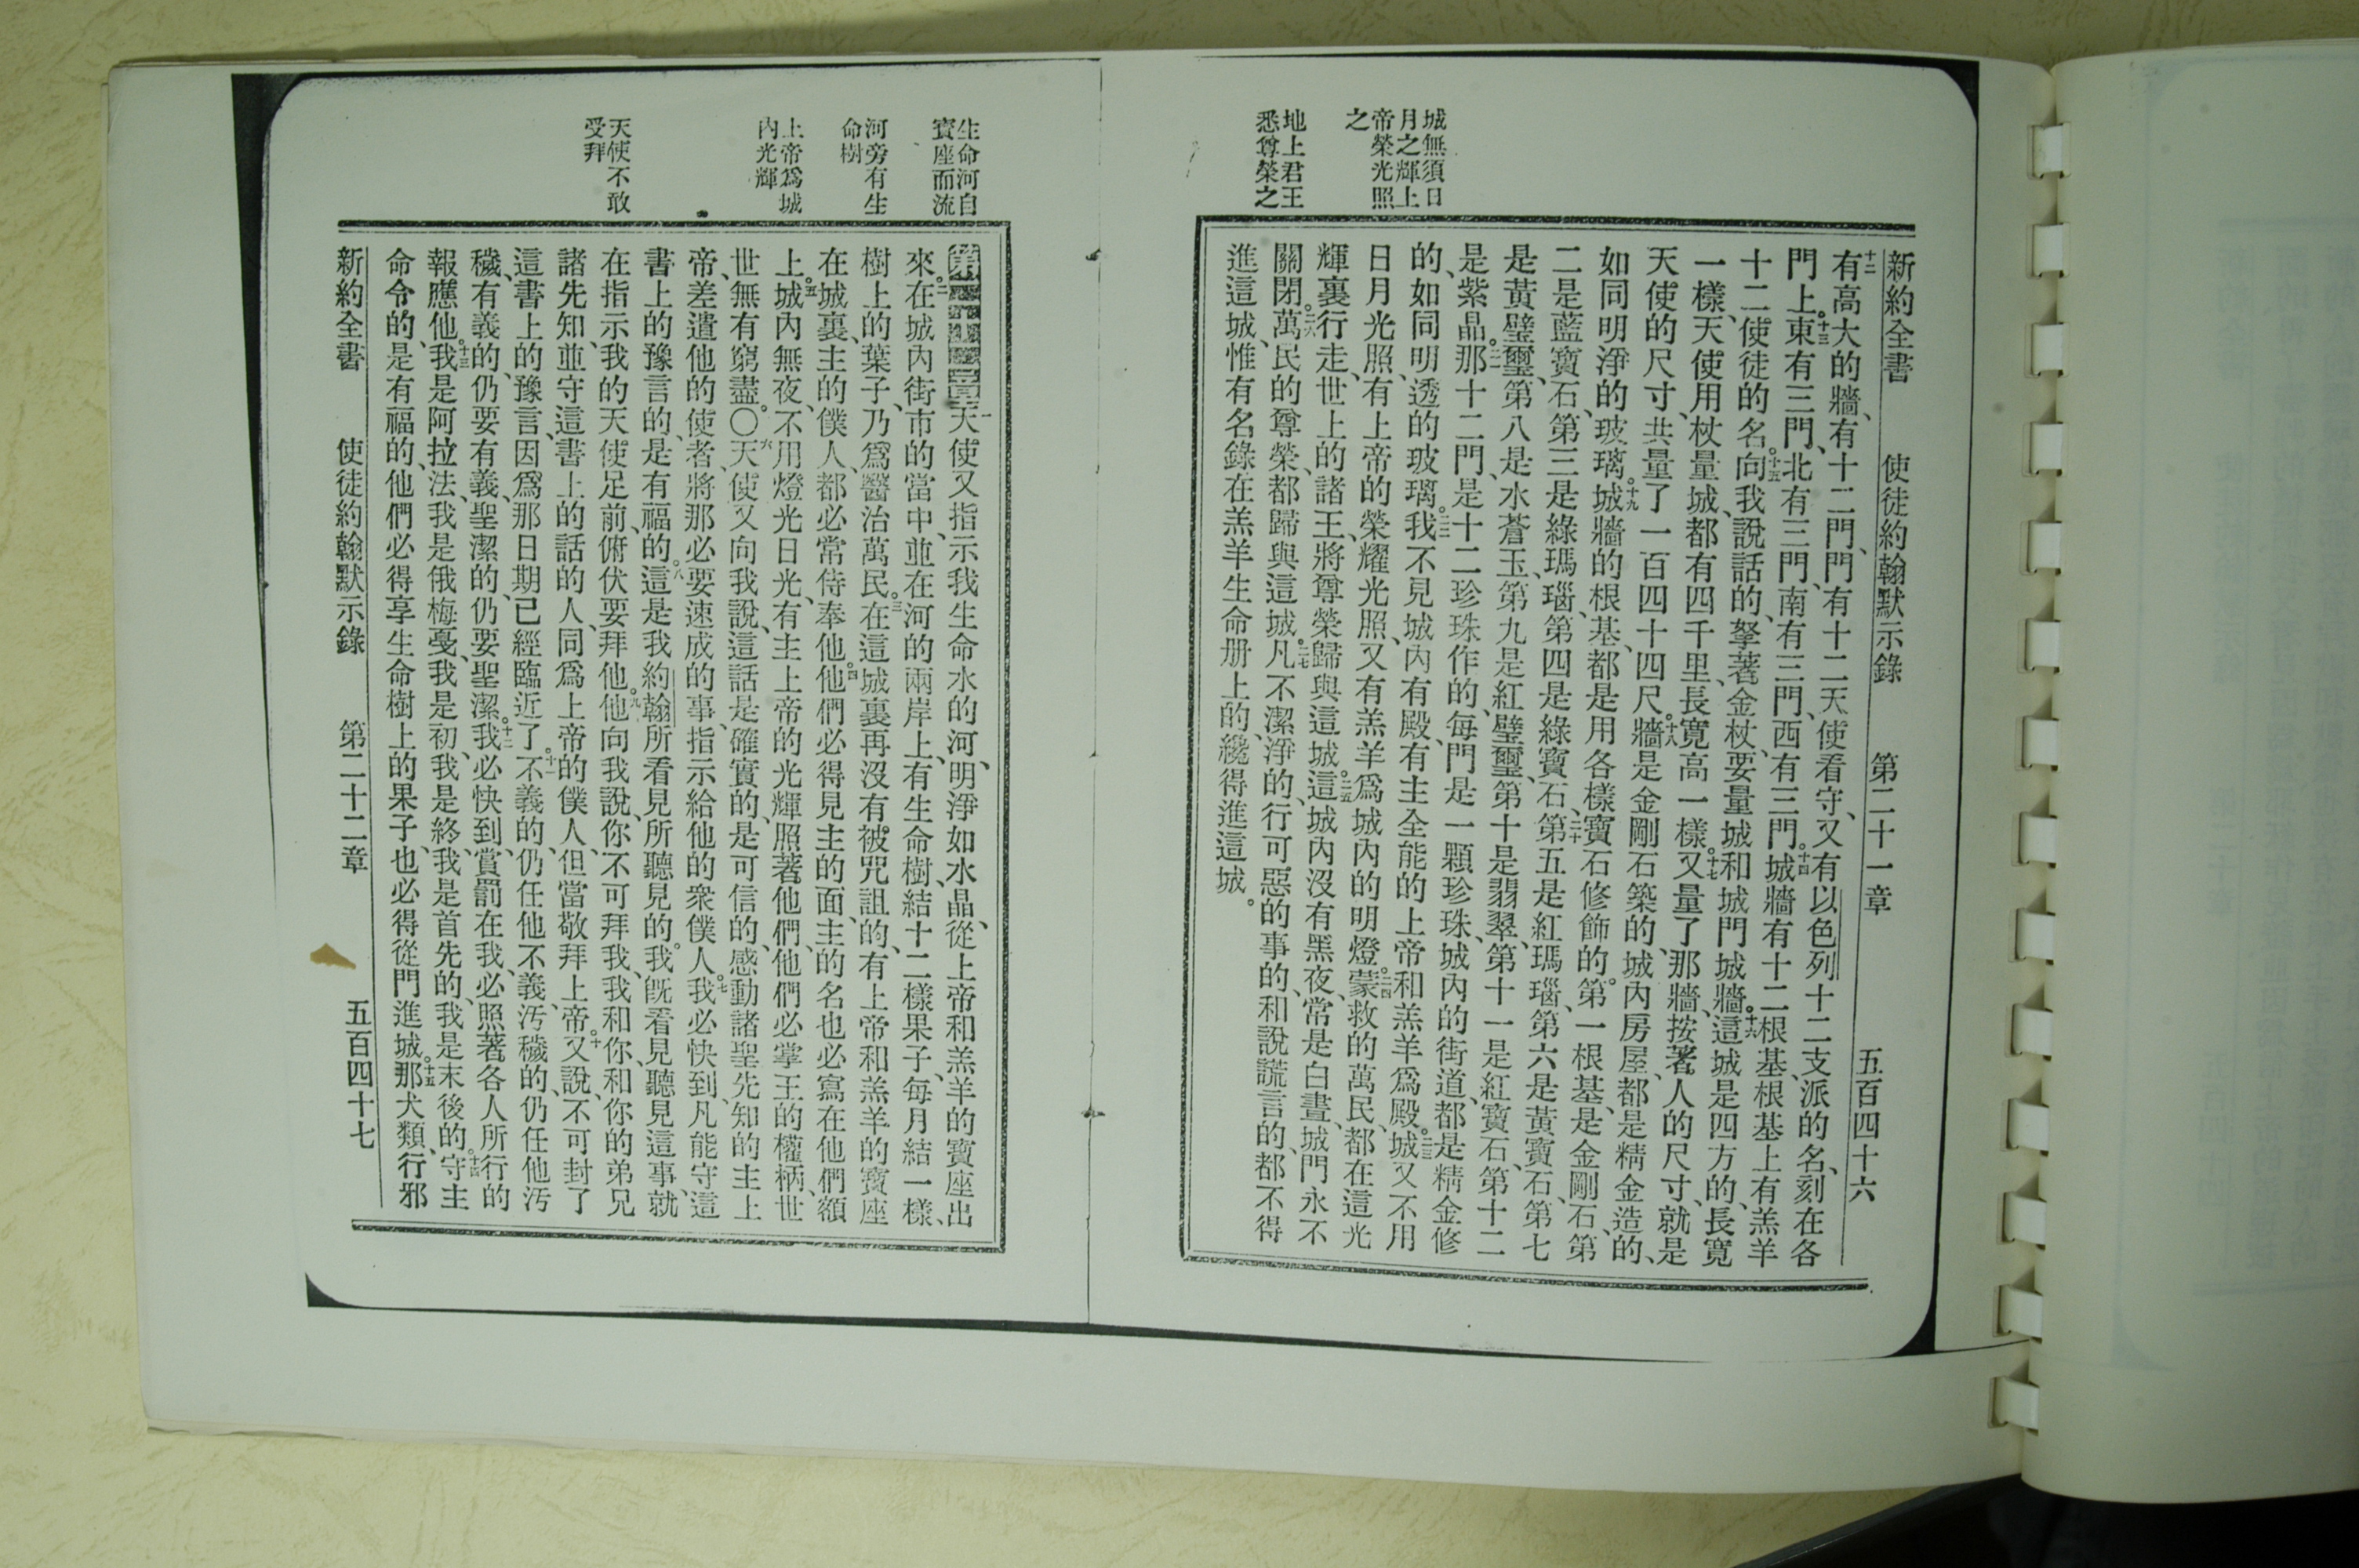 城無須日
月之輝上
帝榮光照
之
地上君王
悉尊榮之
新約全書 使徒約翰默示錄 第二十一章 五百四十六
十二有高大的牆、有十二門、門有十二天使看守、又有以色列十二支派的名、刻在各
門上。十三東有三門、北有三門、南有三門、西有三門。十四城牆有十二根基、根基上有羔羊
十二使徒的名。十五向我說話的、拏著金杖、要量城和城門城牆。十六這城是四方的、長寬
一樣、天使用杖量城、都有四千里、長寬高一樣。十七又量了那牆、按著人的尺寸、就是
天使的尺寸、共量了一百四十四尺。十八牆是金剛石築的、城內房屋、都是精金造的、
如同明淨的玻璃。十九城牆的根基、都是用各樣寶石修飾的。第一根基、是金剛石、第
二是藍寶石、第三是綠瑪瑙、第四是綠寶石、二十第五是紅瑪瑙、第六是黃寶石、第七
是黃璧璽、第八是水蒼玉、第九是紅璧璽、第十是翡翠、第十一是紅寶石、第十二
是紫晶。二一那十二門、是十二珍珠作的、每門是一顆珍珠、城內的街道、都是精金修
的、如同明透的玻璃。二二我不見城內有殿、有主全能的上帝和羔羊爲殿。二三城又不用
日月光照、有上帝的榮耀光照、又有羔羊爲城內的明燈。二四蒙救的萬民、都在這光
輝裏行走、世上的諸王、將尊榮歸與這城。二五這城內沒有黑夜、常是白晝、城門永不
關閉。二六萬民的尊榮、都歸與這城。二七凡不潔淨的、行可惡的事的、和說謊言的、都不得
進這城、惟有名錄在羔羊生命册上的、纔得進這城。
生命河自
寶座而流
河旁有生
命樹
上帝爲城
內光輝
天使不敢
受拜
第二十二章一天使又指示我生命水的河、明淨如水晶、從上帝和羔羊的寶座出
來。二在城內街市的當中、並在河的兩岸上、有生命樹、結十二樣果子、每月結一樣、
樹上的葉子、乃爲醫治萬民。三在這城裏再沒有被咒詛的、有上帝和羔羊的寶座
在城裏、主的僕人、都必常侍奉他。四他們必得見主的面、主的名也必寫在他們額
上。五城內無夜、不用燈光日光、有主上帝的光輝照著他們、他們必掌王的權柄、世
世無有窮盡。〇六天使又向我說、這話是確實的、是可信的、感動諸聖先知的主上
帝、差遣他的使者、將那必要速成的事、指示給他的衆僕人。七我必快到、凡能守這
書上的豫言的、是有福的。八這是我約翰所看見所聽見的。我旣看見聽見這事、就
在指示我的天使足前、俯伏要拜他。九他向我說、你不可拜我、我和你、和你的弟兄
諸先知、並守這書上的話的人、同爲上帝的僕人、但當敬拜上帝。十又說、不可封了
這書上的豫言、因爲那日期已經臨近了。十一不義的、仍任他不義、汚穢的、仍任他汚
穢、有義的、仍要有義、聖潔的、仍要聖潔。十二我必快到、賞罰在我、必照著各人所行的
報應他。十三我是阿拉法、我是俄梅戛、我是初、我是終、我是首先的、我是末後的。十四守主
命令的、是有福的、他們必得享生命樹上的果子、也必得從門進城。十五那犬類、行邪
新約全書 使徒約翰默示錄 第二十二章 五百四十七